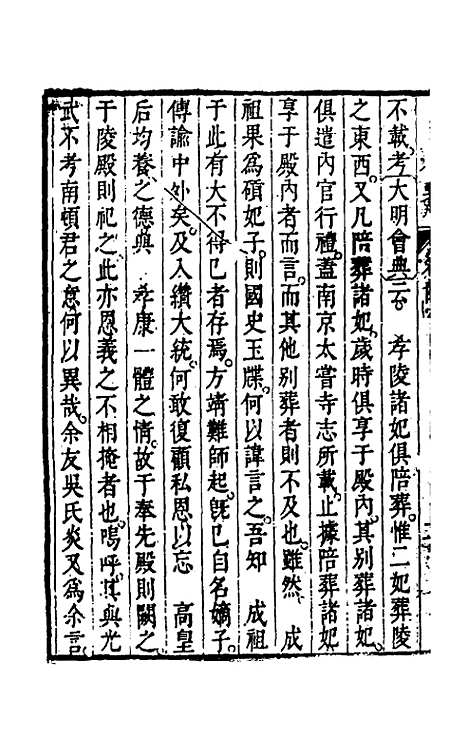 不載考大明會典云　孝陵諸妃俱陪葬惟二妃葬陵
之東西又凡陪葬諸妃歲時俱享于殿內其別葬諸妃
俱遣內官行禮蓋南京太嘗寺志所載止據陪葬諸妃
享于殿內者而言而其他別葬者則不及也雖然　成
祖果為碩妃子則國史玉牒何以諱言之吾知　成祖
于此有大不得已者存焉方靖難師起旣已自名嫡子
傳諭中外矣及入纘大統何敢復顧私恩以忘　高皇
后均養之德與　孝康一體之情故于奉先殿則闕之
于陵殿則祀之此亦恩義之不相掩者也嗚呼其與光
武不考南頓君之意何以異哉余友吳氏炎又為余言